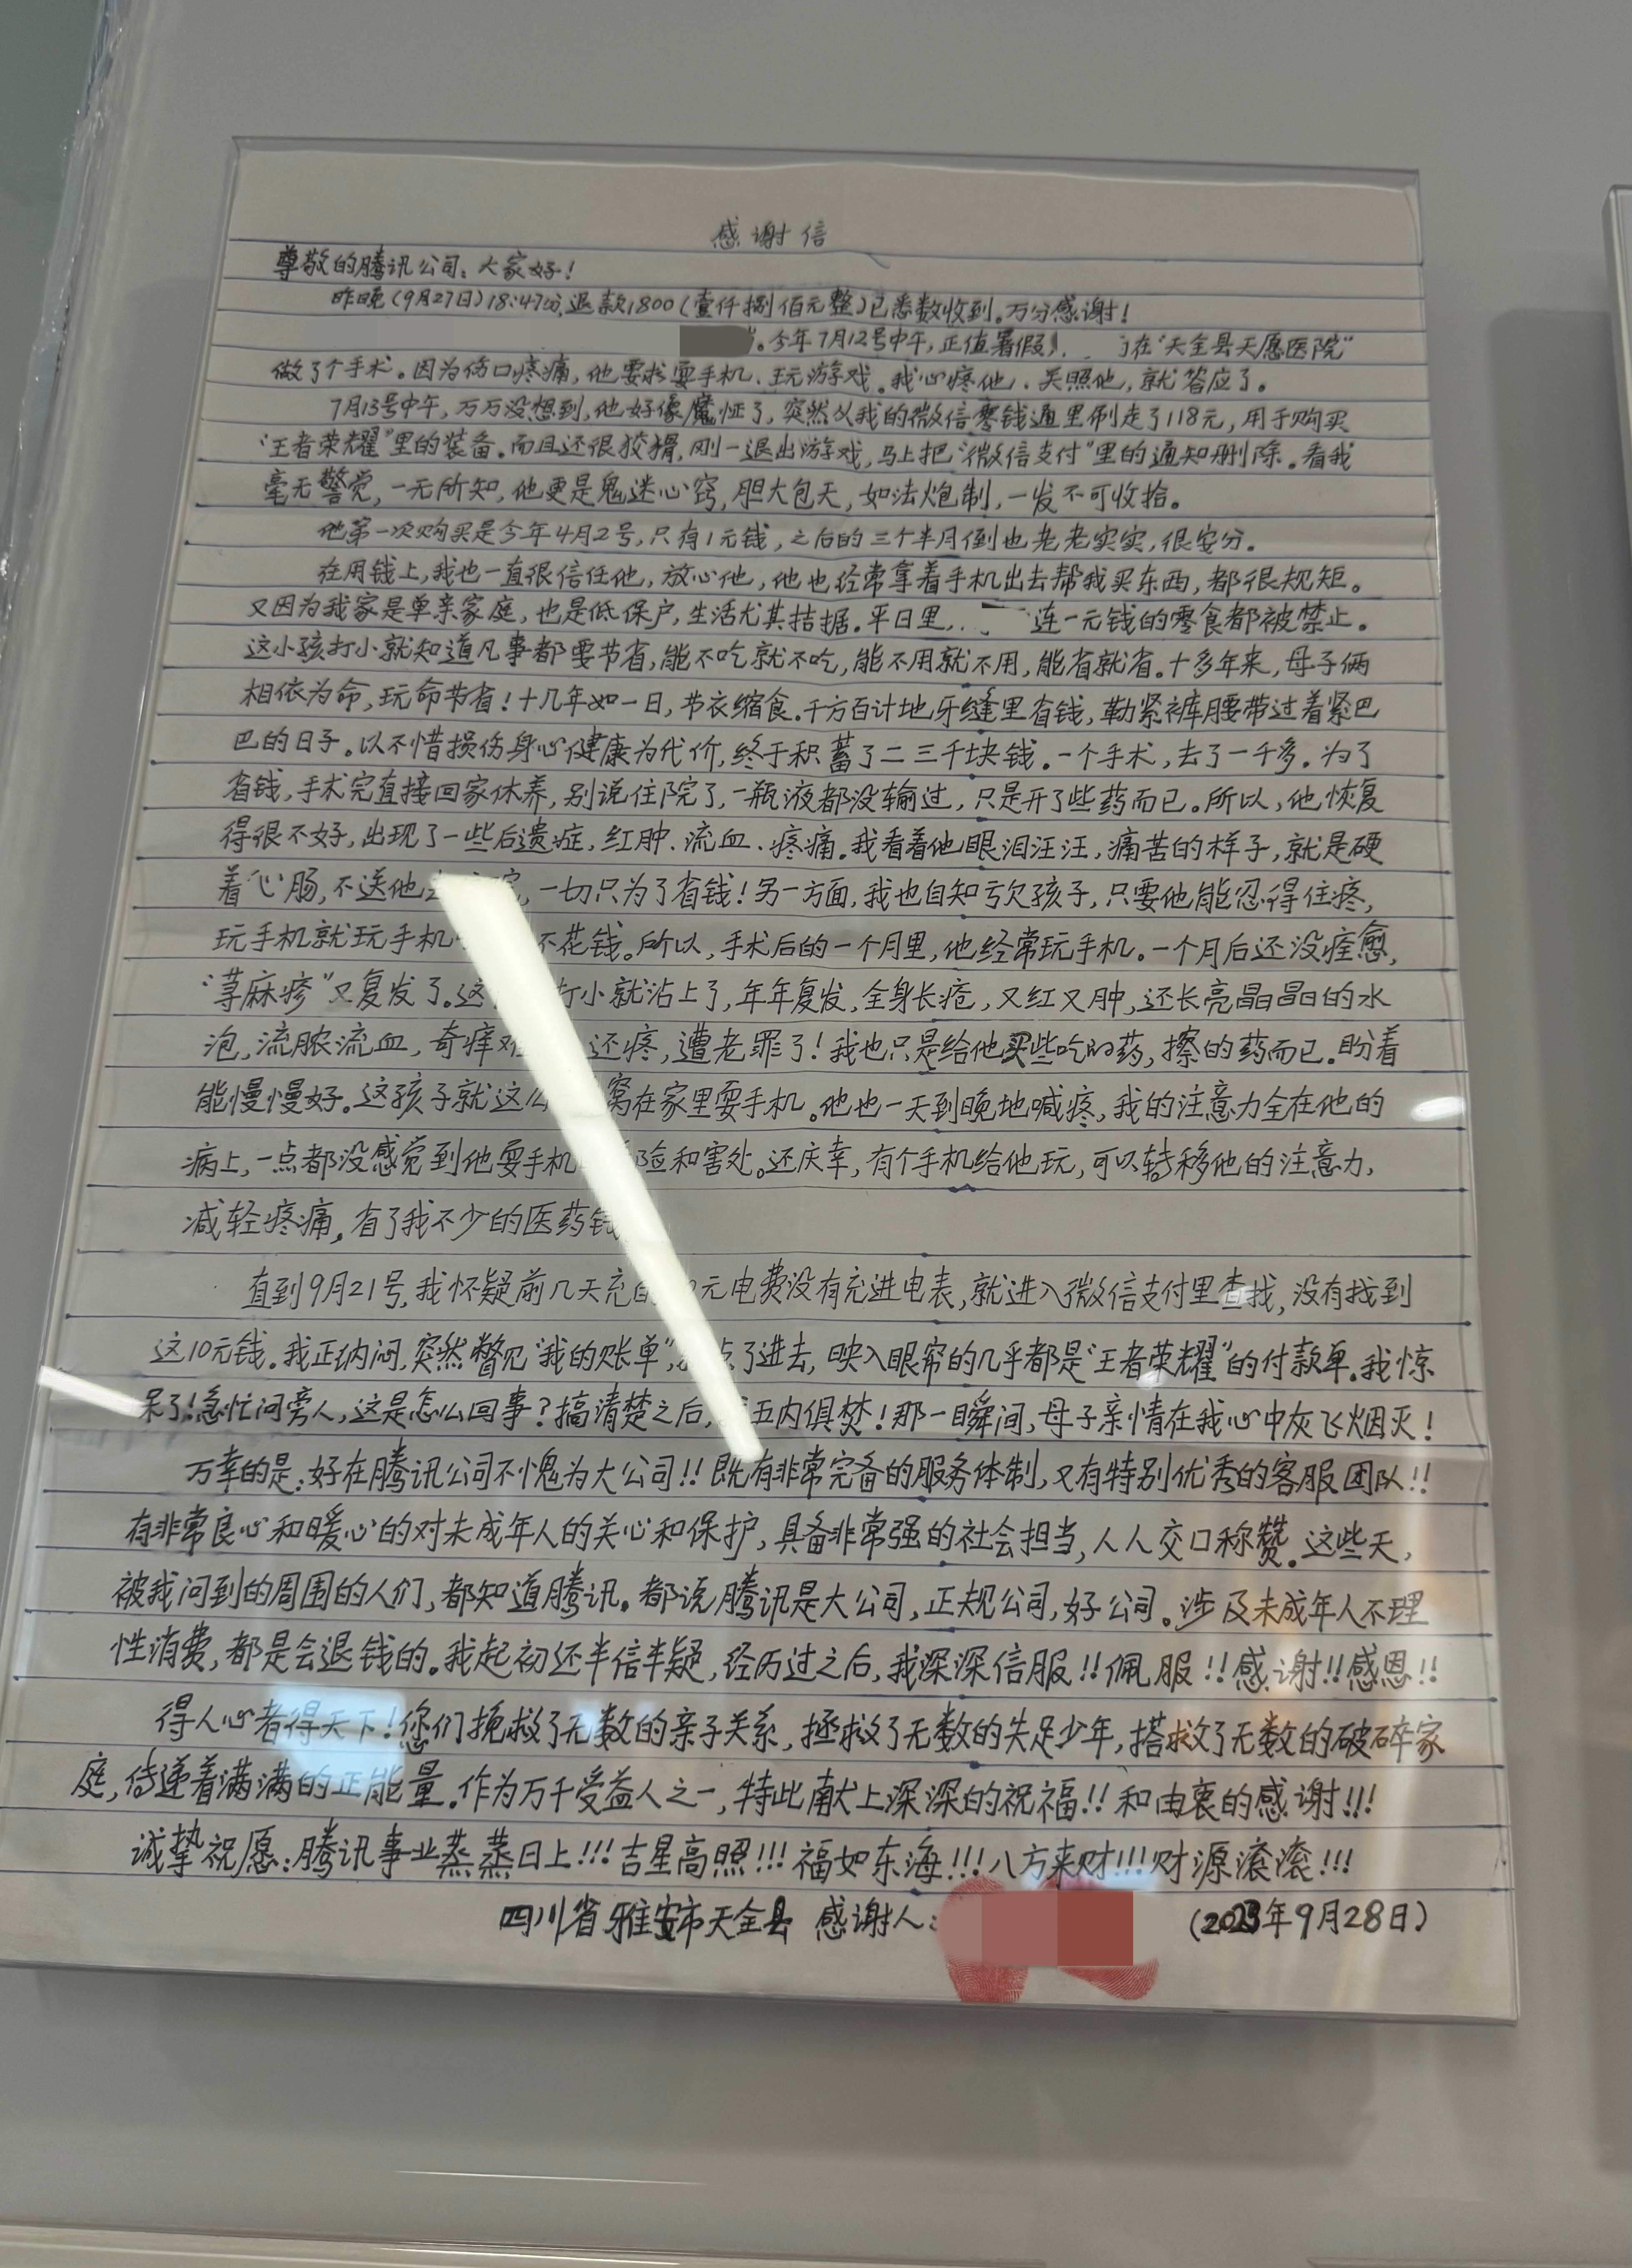 感谢信
尊敬的腾讯公司：大家好！
昨晚（9月27日）18:47分，退款1800（壹仟捌佰元整）已悉数收到。万分感谢！
。今年7月12号中午，正值暑假，在“天全县天愿医院”
做了个手术。因为伤口疼痛，他要求耍手机、玩游戏。我心疼他、关照他，就答应了。
7月13号中午，万万没想到，他好像魔怔了，突然从我的微信零钱通里刷走了118元，用于购买
“王者荣耀”里的装备。而且还很狡猾，刚一退出游戏，马上把“微信支付”里的通知删除。看我
毫无警觉，一无所知，他更是鬼迷心窍，胆大包天，如法炮制，一发不可收拾。
他第一次购买是今年4月2号，只有1元钱，之后的三个半月倒也老老实实，很安分。
在用钱上，我也一直很信任他，放心他，他也经常拿着手机出去帮我买东西，都很规矩。
又因为我家是单亲家庭，也是低保户，生活尤其拮据。平日里，连一元钱的零食都被禁止。
这小孩打小就知道凡事都要节省，能不吃就不吃，能不用就不用，能省就省。十多年来，母子俩
相依为命，玩命节省！十几年如一日，节衣缩食。千方百计地牙缝里省钱，勒紧裤腰带过着紧巴
巴的日子。以不惜损伤身心健康为代价，终于积蓄了二三千块钱。一个手术，去了一千多。为了
省钱，手术完直接回家休养，别说住院了，一瓶液都没输过，只是开了些药而已。所以，他恢复
得很不好，出现了一些后遗症，红肿、流血、疼痛。我看着他眼泪汪汪，痛苦的样子，就是硬
着心肠，不送他去医院，一切只为了省钱！另一方面，我也自知亏欠孩子，只要他能忍得住疼，
玩手机就玩手机 不花钱。所以，手术后的一个月里，他经常玩手机。一个月后还没痊愈，
“荨麻疹”又复发了。这 打小就沾上了，年年复发，全身长疮，又红又肿，还长亮晶晶的水
泡，流脓流血，奇痒难 还疼，遭老罪了！我也只是给他买些吃的药，擦的药而已。盼着
能慢慢好。这孩子就这么 窝在家里耍手机。他也一天到晚地喊疼，我的注意力全在他的
病上，一点都没感觉到他耍手机 险和害处。还庆幸，有个手机给他玩，可以转移他的注意力，
减轻疼痛，省了我不少的医药钱
直到9月21号，我怀疑前几天充的10元电费没有充进电表，就进入微信支付里查找，没有找到
这10元钱。我正纳闷，突然瞥见“我的账单”，我点了进去，映入眼帘的几乎都是“王者荣耀”的付款单。我惊
呆了！急忙问旁人，这是怎么回事？搞清楚之后，我五内俱焚！那一瞬间，母子亲情在我心中灰飞烟灭！
万幸的是：好在腾讯公司不愧为大公司！！既有非常完备的服务体制，又有特别优秀的客服团队！！
有非常良心和暖心的对未成年人的关心和保护，具备非常强的社会担当，人人交口称赞。这些天，
被我问到的周围的人们，都知道腾讯。都说腾讯是大公司，正规公司，好公司。涉及未成年人不理
性消费，都是会退钱的。我起初还半信半疑，经历过之后，我深深信服！！佩服！！感谢！！感恩！！
得人心者得天下！您们挽救了无数的亲子关系，拯救了无数的失足少年，搭救了无数的破碎家
庭，传递着满满的正能量。作为万千受益人之一，特此献上深深的祝福！！和由衷的感谢！！！
诚挚祝愿：腾讯事业蒸蒸日上！！！吉星高照！！！福如东海！！！八方来财！！！财源滚滚！！！
四川省雅安市天全县 感谢人：（2023年9月28日）